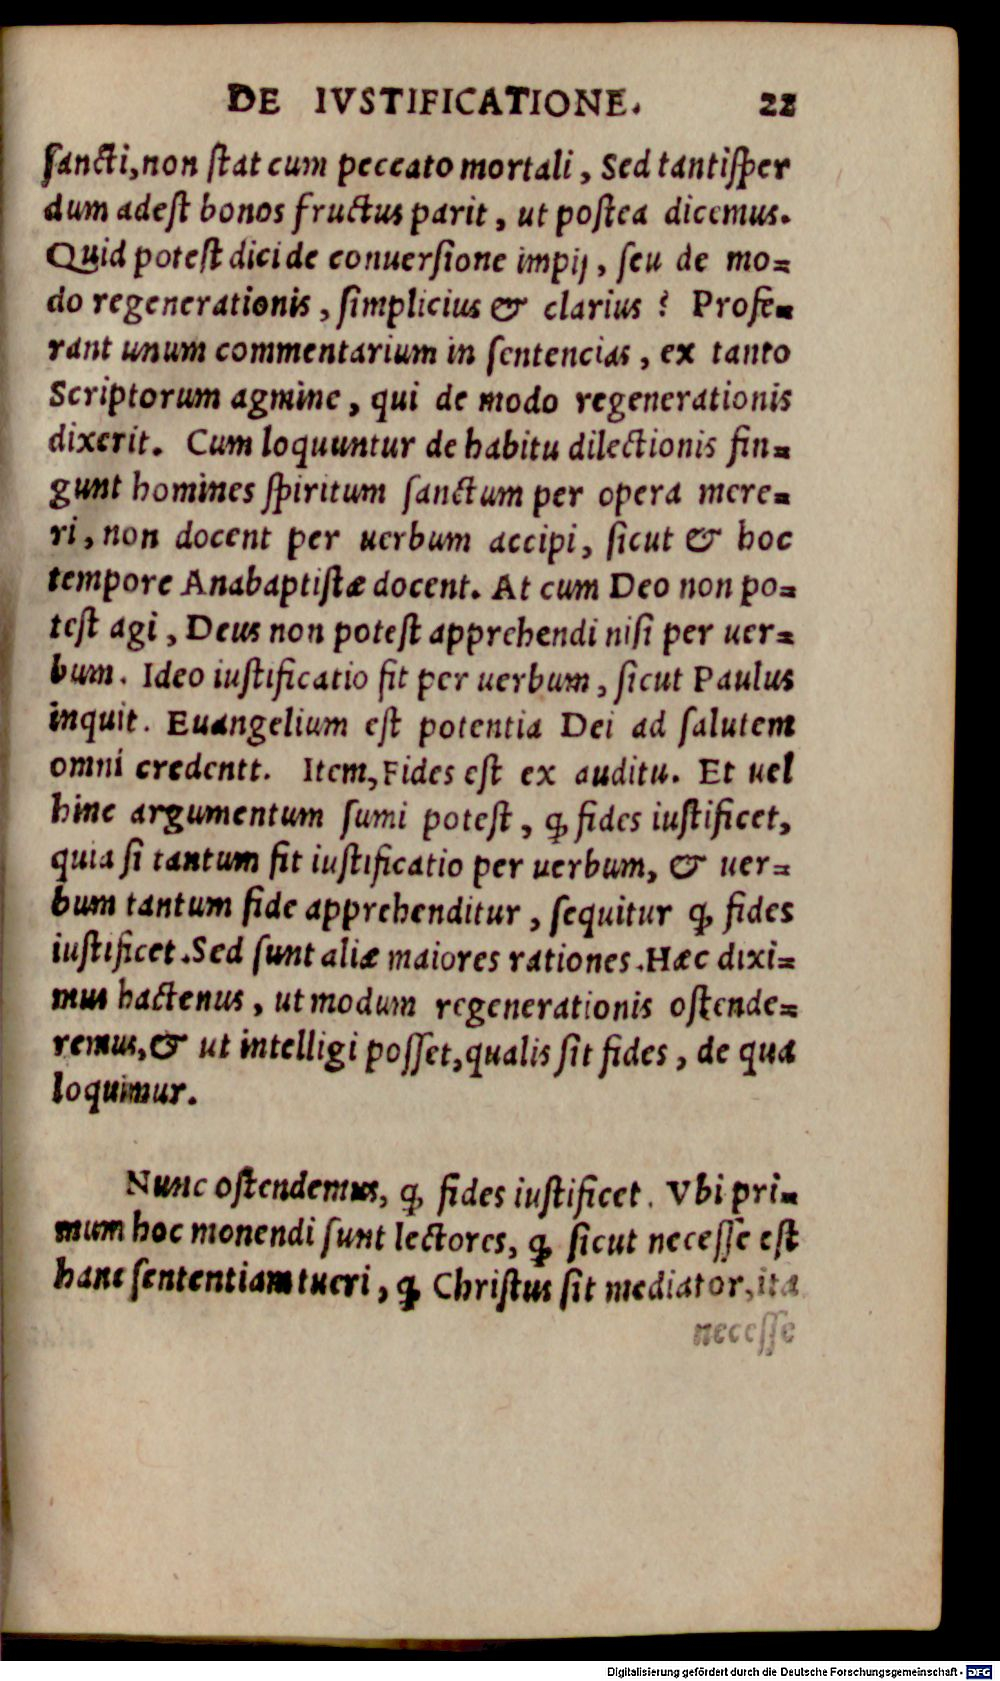 DE IVSTIFICATIONE. 22
ſancti, non ſtat cum peccato mortali, Sed tantiſper
dum adeſt bonos fructus parit, ut poſtea dicemus.
Quid poteſt dici de conuerſione impij, ſeu de mo=
do regenerationis, ſimplicius & clarius? Profe=
rant unum commentarium in ſentencias, ex tanto
Scriptorum agmine, qui de modo regenerationis
dixerit. Cum loquuntur de habitu dilectionis fin=
gunt homines ſpiritum ſanctum per opera mere=
ri, non docent per uerbum accipi, ſicut & hoc
tempore Anabaptiſtæ docent. At cum Deo non po=
teſt agi, Deus non poteſt apprehendi niſi per uer=
bum. Ideo iuſtificatio fit per uerbum, ſicut Paulus
inquit. Euangelium eſt potentia Dei ad ſalutem
omni credenti. Item, Fides eſt ex auditu. Et uel
hinc argumentum ſumi poteſt, ꝙ fides iuſtificet,
quia ſi tantum fit iuſtificatio per uerbum, & uer=
bum tantum fide apprehenditur, ſequitur ꝙ fides
iuſtificet. Sed ſunt aliæ maiores rationes. Hæc dixi=
mus hactenus, ut modum regenerationis oſtende=
remus, & ut intelligi poſſet, qualis ſit fides, de qua
loquimur.
Nunc oſtendemus, ꝙ fides iuſtificet. Vbi pri=
mum hoc monendi ſunt lectores, ꝙ ſicut neceſſe eſt
hanc ſententiam tueri, ꝙ Chriſtus ſit mediator, ita
neceſſe
Digitalisierung gefördert durch die Deutsche Forschungsgemeinschaft - DFG